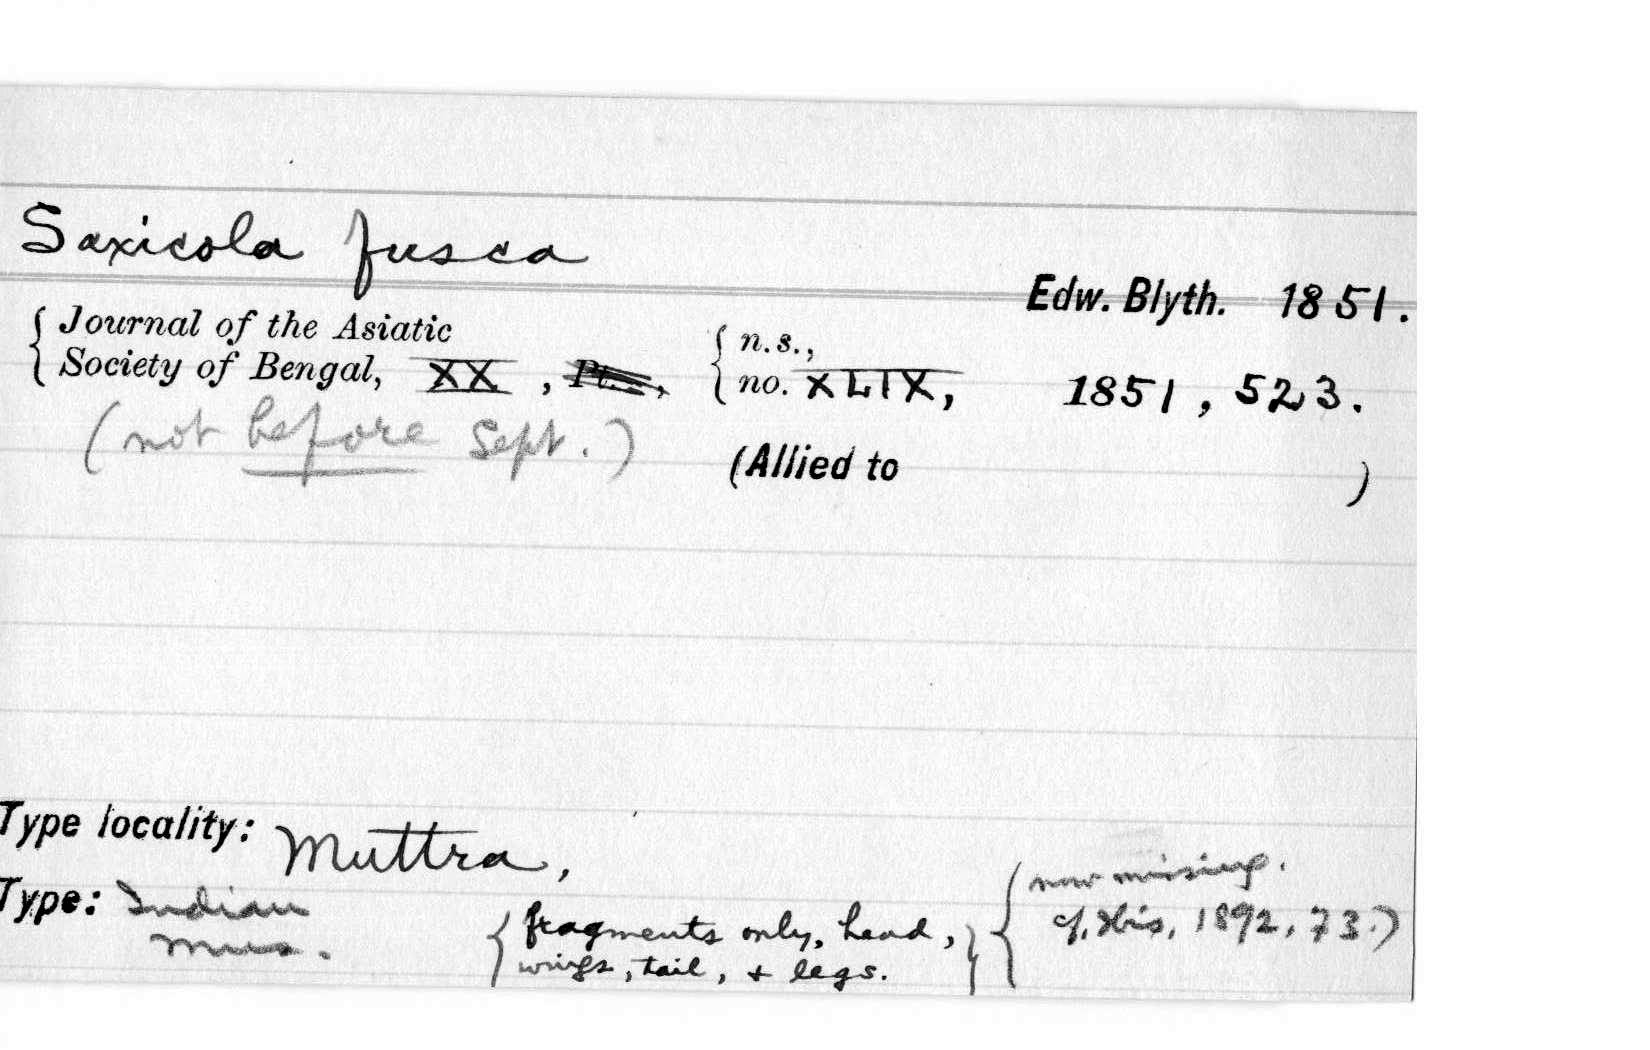 Saxicola fusca
Edw. Blyth. 1851.
{ Journal of the Asiatic
Society of Bengal, XX, Pt. , { n.s.,
no. XLIX, 1851, 523.
(not before Sept.)
(Allied to )
Type locality: Muttra,
Type: Indian
Mus.
{ fragments only, head,
wings, tail, + legs. }
{ now missing.
cf. Ibis, 1892, 73.)